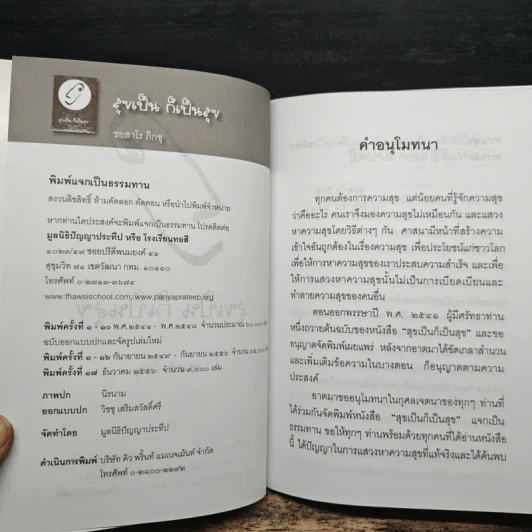 สุขเป็น ก็เป็นสุข
ชยสาโร ภิกขุ
พิมพ์แจกเป็นธรรมทาน
สงวนลิขสิทธิ์ ห้ามคัดลอก ตัดตอน หรือนำไปพิมพ์จำหน่าย
หากท่านใดประสงค์จะพิมพ์แจกเป็นธรรมทาน โปรดติดต่อ
มูลนิธิปัญญาประทีป หรือ โรงเรียนทอสี
๑๐๒๓/๔๗ ซอยปรีดีพนมยงค์ ๔๑
สุขุมวิท ๗๑ เขตวัฒนา กทม. ๑๐๑๑๐
โทรศัพท์ ๐-๒๗๑๓-๓๖๗๔
www.thawsischool.com, www.panyaprateep.org
พิมพ์ครั้งที่ ๑ - ๑๐ พ.ศ.๒๕๔๑ - พ.ศ.๒๕๔๔ จำนวนประมาณ ๖๐,๐๐๐
ฉบับออกแบบปกและจัดรูปเล่มใหม่
พิมพ์ครั้งที่ ๑ - ๑๖ กันยายน ๒๕๔๗ - กันยายน ๒๕๕๖
พิมพ์ครั้งที่ ๑๗ ธันวาคม ๒๕๕๖ จำนวน ๙,๐๐๐ เล่ม
ภาพปก นิรนาม
ออกแบบปก วิชชุ เสริมสวัสดิ์ศรี
จัดทำโดย มูลนิธิปัญญาประทีป
ดำเนินการพิมพ์ บริษัท คิว พริ้นท์ แมเนจเม้นท์ จำกัด
โทรศัพท์ ๐-๒๘๐๐-๒๒๙๒
คำอนุโมทนา
ทุกคนต้องการความสุข แต่น้อยคนที่รู้จักความสุข
ว่าคืออะไร คนเราจึงมองความสุขไม่เหมือนกัน และแสวง
หาความสุขโดยวิธีต่างๆ กัน ศาสนามีหน้าที่สร้างความ
เข้าใจอันถูกต้องในเรื่องความสุข เพื่อประโยชน์แก่ชาวโลก
เพื่อให้การหาความสุขของเราประสบความสำเร็จ และเพื่อ
ให้การแสวงหาความสุขนั้นไม่เป็นการเบียดเบียนและ
ทำลายความสุขของคนอื่น
ตอนออกพรรษาปี พ.ศ. ๒๕๔๑ ผู้มีศรัทธาท่าน
หนึ่งถวายต้นฉบับของหนังสือ “สุขเป็นก็เป็นสุข” และขอ
อนุญาตจัดพิมพ์เผยแพร่ หลังจากอาตมาได้ขัดเกลาสำนวน
และเพิ่มเติมข้อความในบางตอน ก็อนุญาตตามความ
ประสงค์
อาตมาขออนุโมทนาในกุศลเจตนาของทุกๆ ท่านที่
ได้ร่วมกันจัดพิมพ์หนังสือ “สุขเป็นก็เป็นสุข” แจกเป็น
ธรรมทาน ขอให้ทุกๆ ท่านพร้อมด้วยทุกคนที่ได้อ่านหนังสือ
นี้ ได้ปัญญาในการแสวงหาความสุขที่แท้จริงและได้ค้นพบ